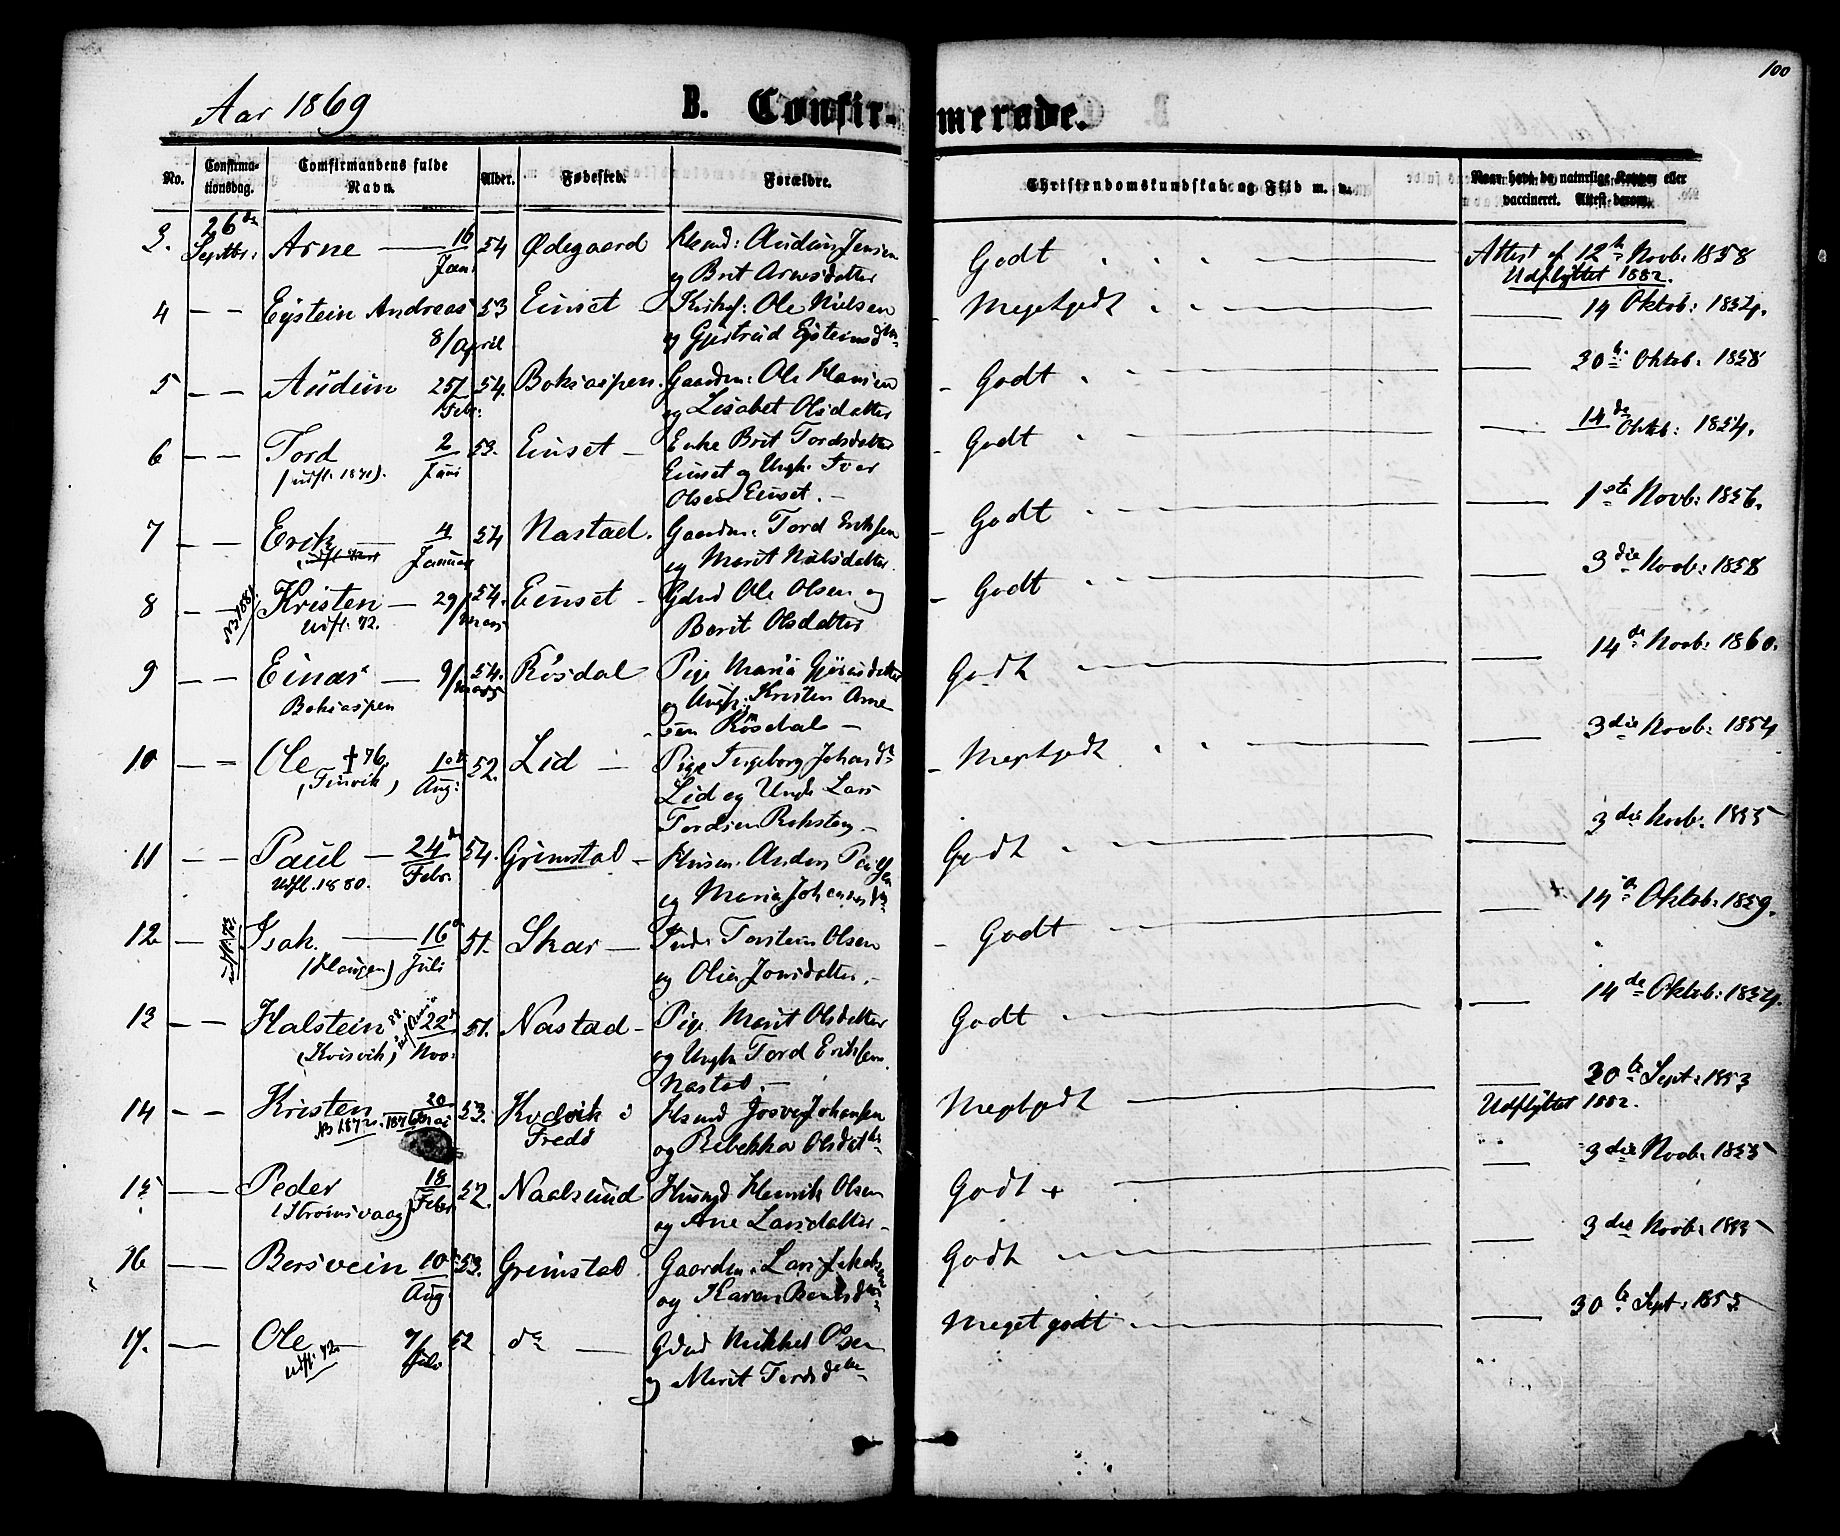 100
Aar 1869
B. Confirmerede.
No.
Confirmationsdag.
Comfirmandens fulde Navn.
Alder.
Fødested.
Forældre.
Christendomskundskab og Flid m. v.
Naar havt de naturlige Kopper eller vaccineret. Attest derom.
3. 26de Septbr: Arne 16/Jan: 54 Ødegaard Huusmd: Audun Jensen Godt Attest af 12te Novb: 1858
og Brit Arnesdatter Udflyttet 1882.
4 — — Eystein Andreas 53 Einset Ole Nielsen Megetgodt — 14 Oktob: 1854.
8/April og Gjertrud Eysteinsdtr
5 — — Audun 25/Febr: 54. Boksaspen. Gaardm: Ole Hansen Godt — 30te Oktob: 1858
og Lisabet Olsdatter
6 — — Tord 2/Juni 53. Einset — Enke Brit Tordsdatter Godt — 14de Oktob: 1854.
(udfl. 1871). Einset og Ungk: Iver
Olsen Einset. —
7 — — Erik — 4/Januar 54 Nastad. Gaardm: Tord Eriksen Godt — 1ste Novb: 1856.
og Marit Nilsdatter
8 — — Kristen — 29/Mars 54. Einset - Gdmd Ole Olsen og Godt — 3die Novb: 1858
Udfl: 72. Berit Olsdatter
9 — — Einar — 9/Mars 54. Røsdal Pige Maria Gjørasdatter Godt — 14de Novb: 1860.
Boksaspen og Ungk: Kristen Arne
sen Røsdal —
10 — — Ole † 76, 1ste/Aug: 52. Lid — Pige Ingeborg Johansdtr Megetgodt — 3die Novb: 1854
Lid og Ungk Lars
Tordsen —
11 — — Paul — 24de/Febr: 54. Grimstad — Husm. Anders Godt — 3die Novb: 1855
Udfl. 1880. og Maria Johannesdtr
12 — Isak. — 16de/Juli 51. Skar — Torstein Olsen Godt — 14de Oktob: 1859.
udfl. 73. (Haugen) og Olia Jonsdatter. —
13 — — Halstein 22de/Nov: 51. Nastad - Pige Marit Olsdatter Godt — 14de Oktob: 1854.
(Kvisvik) og Ungk Tord Eriksen
Nastad. —
14 — — Kristen 20/Mai 53. Kvalvik i Josva Johansen Megetgodt — 30te Sept: 1853
Fredø og Rebekka Olsdatter Udflyttet 1882.
15 — — Peder 18/Febr 52. Naalsund Husmd Henrik Olsen Godt + — 3die Novb: 1855
(Strømsvaag) og Ane Larsdatter -
16 — — Bersvein 10de/Aug: 53. Grimstad Gaardm: Lars Godt — 3die Novb: 1855
og Karen
17. — — Ole — 7/Juli 52 do — Gdmd Mikkel Olsen Meget godt — 30te Sept: 1853
udfl. 72 og Marit Tordsdatter